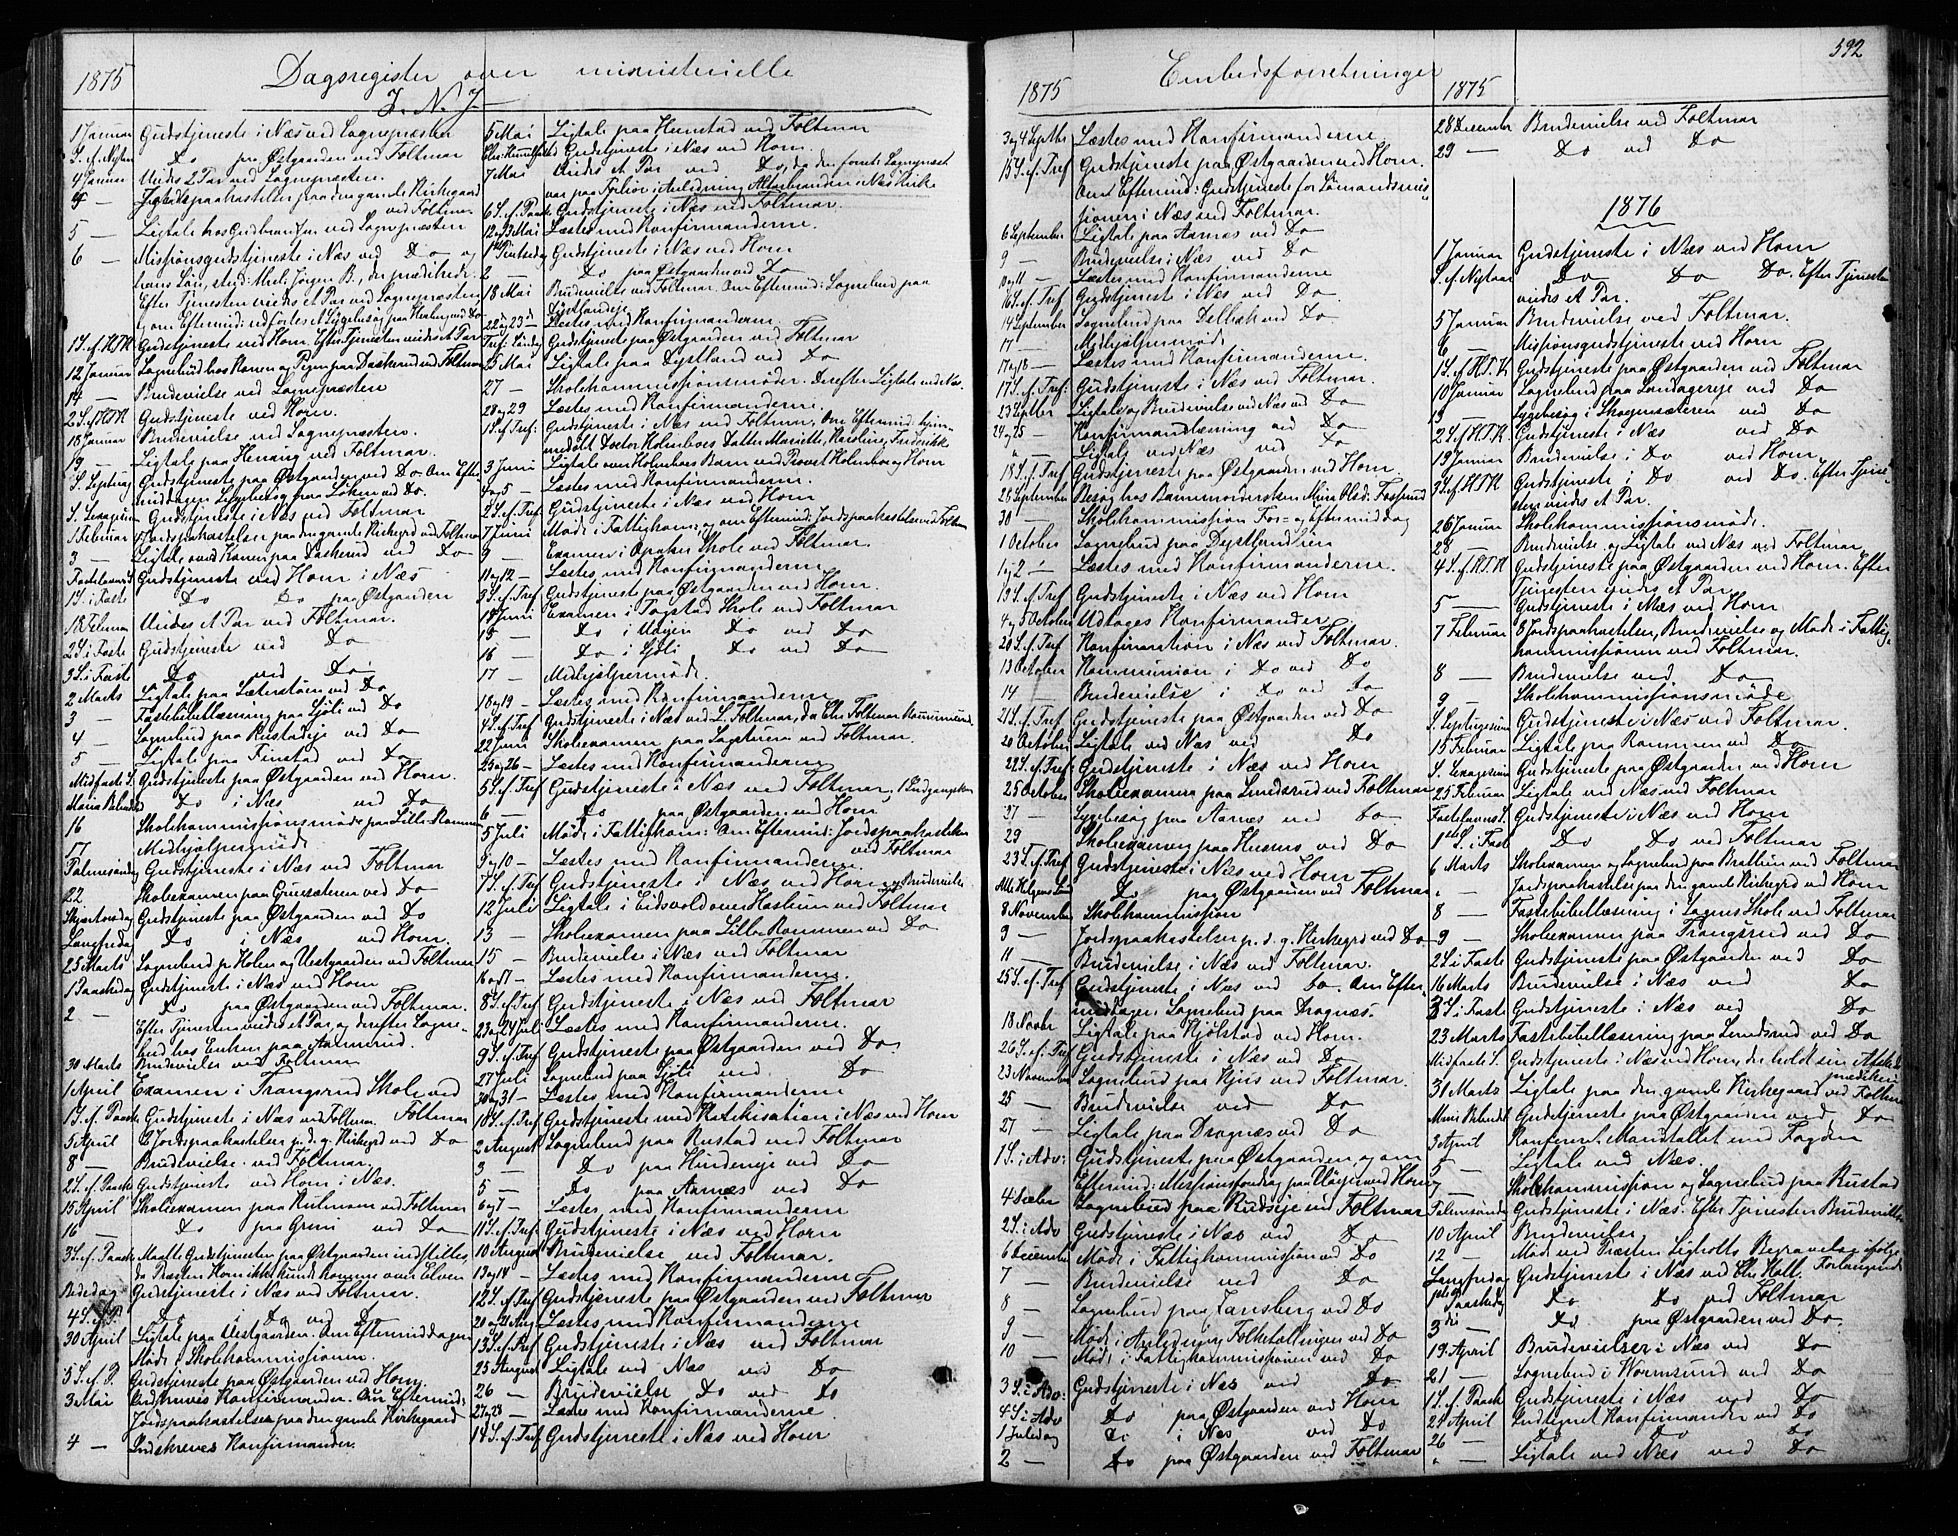 1875
Dagsregister over ministerielle
I. N. J.
1 Januar Gudstjeneste i Næs ved Sognepræsten
S. e. Nytaar Do paa Østgaarden ved Foltmar
4 Januar Viedes 2 Par ved Sognepræsten.
4 — Jordspaakastelse paa den gamle Kirkegaard
ved Foltmar
5 — Ligtale hos Gudbrand ved Sognepræsten
6 — Missionsgudstjeneste i Næs ved Do og
hans Søn, Jørgen B., der prædikede.
Efter Tjenesten viedes et Par ved Sognepræsten
og om Eftermid: udførtes et Sygebesøg paa Herberg ved Do
1 S. e. H.3.K. Gudstjeneste ved Horn. Efter Tjenesten viedes et Par
12 Januar Sognebud hos Konen og Pigen paa Daskerud ved Foltmar
14 — Brudevielse ved Sognepræsten
2 S. e. H.3.K. Gudstjeneste ved Horn.
18 Januar Brudevielse ved Sognepræsten.
19 — Ligtale paa Henæng ved Foltmar.
S. Septuag Gudstjeneste paa Østgaarden ved Do. Om Efter-
middagen Sygebesøg paa Løken ved Do.
S. Sexagesima Gudstjeneste i Næs ved Foltmar
1 Februar Jordspaakastelser paa den gamle Kirkegrd ved Foltmar
3 — Ligtale over Konen paa Daskerud ved Do
Fastelavns S Gudstjeneste ved Horn i Næs
1 S. i Faste Do Do paa Østgaarden
18 Februar Viedes et Par ved Foltmar.
2 S. i Faste Gudstjeneste ved Do
3 S. i Faste Do ved Do
2 Marts Ligtale paa Sæterstøen ved Do
3 — Fastebibellæsning paa Sjøli ved Do
4 — Sognebud paa Rustadeje ved Do
5 — Ligtale paa Finstad ved Do
Midfaste S. Gudstjeneste paa Østgaarden ved Horn.
Maria Bebud Do i Næs ved Do
16 Skolekommissionsmøde paa Lille-Rommen
17 Medhjælpermøde
Palmesøndag Gudstjeneste i Næs ved Foltmar
22 Skoleexamen paa Grusæteren ved Do
Skjærtorsdag Gudstjeneste paa Østgaarden ved Do
Langfredag Do i Næs ved Horn.
25 Marts Sognebud p. Holen og Vestgaarden ved Foltmar
1 Paaskedag Gudstjeneste i Næs ved Horn
2 — Do paa Østgaarden ved Foltmar.
Efter Tjenesten viedes et Par, og derefter Sogne-
bud hos Enken paa Aamerud.
30 Marts Brudevielse ved Foltmar
1 April Examen i Trangsrud Skole ved
Foltmar
1 S. e. Paaske Gudstjeneste i Næs ved Foltmar.
5 April 3 Jordspaakastelser p. d. g. Kirkegrd ved Do
8 — Brudevielse ved Foltmar.
2 S. e. Paaske Gudstjeneste ved Horn i Næs.
15 April Skoleexamen paa Rulnæs ved Foltmar
16 — Do paa Greni ved Do
3 S. e. Paaske Maatte Gudstjenesten paa Østgaarden indstilles,
da Præsten Horn ikke kunde komme over Elven
Bededag Gudstjeneste i Næs ved Foltmar.
4 S. e. P. Do i Do ved Do
30 April Ligtale paa Vestgaarden. Om Eftermiddagen
Møde i Skolekommissionen.
5 S. e. P. Gudstjeneste paa Østgaarden ved Horn.
3 Mai Indskreves Konfirmander. Om Eftermid:
Jordspaakastelse paa den gamle Kirkegaard
4 — Indskreves Konfirmander.
5 Mai Ligtale paa Hunstad ved Foltmar
Chr. Himmelfart Gudstjeneste i Næs ved Horn.
7 Mai Viedes et Par ved Do, da den forrte Sognepræst
var paa Ferier i Anledning Alterbranden i Næs Kirke
6 S. e. Paask Gudstjeneste i Næs ved Foltmar.
12 og 13 Mai Læstes med Konfirmanderne.
1ste Pintsedag Gudstjeneste i Næs ved Horn
2 — Do paa Østgaarden ved Do
18 Mai Brudevielse ved Foltmar. Om Eftermid: Sognebud paa
Dystlandeje
22 og 23de Læstes med Konfirmanderne.
Tref: Søndag Gudstjeneste paa Østgaarden ved Foltmar
25 Mai Ligtale paa Dystland ved Do
27 — Skolekommissionsmøder. Derefter Ligtale ved Næs.
28 og 29 Læstes med Konfirmanderne.
1 S. e. Tref: Gudstjeneste i Næs ved Foltmar, Om Eftermid: hjem-
medøbt Doctor Holmboes Datter Mariette, Karoline, Fredrikke
3 Juni Ligtale over Holmboes Barn ved Provst Holmboe og Horn
4 og 5 — Læstes med Konfirmanderne.
2 S. e. Tref: Gudstjeneste i Næs ved Horn
7 Juni Møde i Fattigkom: og om Eftermid: Jordspaakastelse ved Foltmar
9 — Examen i Opaker Skole ved Foltmar.
11 og 12 — Læstes med Konfirmanderne
3 S. e. Tref Gudstjeneste paa Østgaarden ved Horn.
14 Juni Examen i Fagstad Skole ved Foltmar
15 — Do i Udigen Do ved Do
16 — Do i Sjøli Do ved Do
17 — Medhjælpermøde.
18 og 19 — Læstes med Konfirmanderne
4 S. e. Tref Gudstjeneste i Næs ved L. Foltmar, da Chr. Foltmar
22 Juni Skoleexamen paa Sagstuen ved Foltmar.
25 og 26 — Læstes med Konfirmanderne
5 S. e. Tref Gudstjeneste i Næs ved Foltmar,
6 — Do paa Østgaarden ved Horn
5 Juli Møde i Fattigkom: Om Eftermid: Jordspaakastelse
ved Foltmar
9 og 10 — Læstes med Konfirmanderne
7 S. e. Tref Gudstjeneste i Næs ved Horn og Brudevielse
12 Juli Ligtale i Eidsvold over Haslum ved Foltmar
13 — Skoleexamen paa Lille-Rommen ved Do
15 — Brudevielse i Næs ved Foltmar
16 og 17 — Læstes med Konfirmanderne.
8 S. e. Tref Gudstjeneste i Næs ved Foltmar
23 og 24 Juli Læstes med Konfirmanderne.
9 S. e. Tref Gudstjeneste paa Østgaarden ved Do
27 Juli Sognebud paa Sjøli ved Do
30 og 31 — Læstes med Konfirmanderne
10 S. e. Tref Gudstjeneste med Katekisation i Næs ved Horn
2 August Sognebud paa Rustad ved Foltmar
3 — Do paa Hindeneje ved Do
5 — Do paa Aarnæs ved Do
6 og 7 — Læstes med Konfirmanderne
11 S. e. Tref Gudstjeneste i Næs ved Horn
10 August Brudevielse ved Foltmar.
13 og 14 — Læstes med Konfirmanderne
12 S. e. Tref Gudstjeneste paa Østgaarden ved Foltmar
20 og 21 Aug: Læstes med Konfirmanderne
13 S. e. Tref Gudstjeneste i Næs ved Foltmar
25 August Ligtale ved Næs ved Do
26 — Brudevielse Do ved Do
27 og 28 — Læstes med Konfirmanderne.
14 S. e. Tref Gudstjeneste i Næs ved Horn
592
Embedsforretninger
1875
3 og 4 Septbr Læstes med Konfirmanderne
15 S. e. Tref Gudstjeneste paa Østgaarden ved Horn.
Om Eftermid: Gudstjeneste for Sømandsmis-
sionen i Næs ved Foltmar.
6 September Ligtale paa Aarnæs ved Do
9 — Brudevielse i Næs ved Do
10 og 11 — Læstes med Konfirmanderne
16 S. e. Tref Gudstjeneste i Næs ved Do
14 September Sognebud paa Delbæk ved Do.
17 — Medhjælpermøde
17 og 18 — Læstes med Konfirmanderne.
17 S. e. Tref: Gudstjeneste i Næs ved Foltmar.
23 Septbr Ligtale og Brudevielse ved Næs ved Do
24 og 25 — Konfirmandlæsning ved Do
„ — Ligtale ved Næs ved Do
18 S. e. Tref Gudstjeneste paa Østgaarden ved Horn.
28 September Besøg hos Barnmordersken Mina Olsd: Fosserud
30 — Skolekommission For- og Eftermiddag
1 October Sognebud paa Dystlandlien
1 og 2 — Læstes med Konfirmanderne.
19 S. e. Tref Gudstjeneste i Næs ved Horn
4 og 5 October Udtoges Konfirmander
20 S. e. Tref Konfirmation i Næs ved Foltmar.
13 October Kommunion i Do ved Do
14 — Brudevielse i Do ved Do
21 S. e. Tref Gudstjeneste paa Østgaarden ved Do
20 October Ligtale ved Næs ved Do
22 S. e. Tref: Gudstjeneste i Næs ved Horn
25 October Skoleexamen paa Smedsrud ved Foltmar
27 — Sygebesøg paa Aarnæs ved Do
29 Skoleexamen paa Husmo ved Do
23 S. e. Tref Gudstjeneste i Næs ved Horn
Alle Helgens Sønd Do paa Østgaarden ved Foltmar
8 November Skolekommission
9 — Jordspaakastelser p. d. g. Kirkegrd ved Do
11 — Brudevielse i Næs ved Foltmar.
25 S. e. Tref Gudstjeneste i Næs ved Do. Om Efter-
middagen Sognebud paa Dragnæs.
18 Novbr Ligtale paa Kjølstad ved Horn.
26 S. e. Tref Gudstjeneste i Næs ved Do
23 November Sognebud paa Kjus ved Foltmar.
25 — Brudevielse ved Do
27 — Ligtale paa Dragnæs ved Do
1 S. i Adv: Gudstjeneste paa Østgaarden, og om
Eftermid: Missionsforedrag paa Udigen ved Horn
4 Decbr Sognebud paa Rudseje ved Foltmar
2 S. i Adv Gudstjeneste i Næs ved Do
6 December Møde i Fattigkommission ved Do
7 — Brudevielse ved Do
8 — Sognebud paa Fansberg ved Do
9 — Møde i Anledning Folketællingen ved Do
10 — Møde i Fattigkommissionen ved Do
3 S. i Adv: Gudstjeneste i Næs ved Do
4 S. i Adv Do paa Østgaarden ved Horn
1 Juledag Do i Næs ved Do
2 — Do paa Østgaarden ved Foltmar
1875
28 December Brudevielse ved Foltmar
29 — Do ved Do
1876
1 Januar Gudstjeneste i Næs ved Horn
S. e. Nytaar Do Do Do. Efter Tjenesten
viedes et Par.
5 Januar Brudevielse ved Foltmar.
6 — Missionsgudstjeneste ved Horn
1 S. e. H.3.K Gudstjeneste paa Østgaarden ved Foltmar
10 Januar Sognebud paa Sandagereje ved Do
13 — Sygebesøg i Skogensæteren ved Do
2 S. e. H.3.K. Gudstjeneste i Næs ved Do
19 Januar Brudevielse i Do ved Horn
3 S. e. H.3.K Gudstjeneste i Do ved Do. Efter Tjene-
sten viedes et Par.
26 Januar Skolekommissionsmøde.
28 — Brudevielse og Ligtale ved Næs ved Foltmar
4 S. e. H.3.K Gudstjeneste paa Østgaarden ved Horn. Efter
Tjenesten viedes et Par
5 — Gudstjeneste i Næs ved Horn
7 Februar 8 Jordspaakastelser, Brudevielse og Møde i Fattig-
kommissionen ved Foltmar.
8 — Brudevielse ved Do
9 — Skolekommissionsmøde
S. Septuagesima Gudstjeneste i Næs ved Foltmar.
15 Februar Ligtale paa Rommen ved Do
S. Sexagesima Gudstjeneste paa Østgaarden ved Horn
25 Februar Ligtale ved Næs ved Foltmar
Fastelavns S. Gudstjeneste i Næs ved Horn
1ste S. i Faste Do Do ved Foltmar
6 Marts Skoleexamen og Sognebud paa Brattun ved Foltmar
„ Jordspaakastelse paa den gamle Kirkegrd ved Horn
8 — Fastebibellæsning i Sagnes Skole ved Foltmar
9 — Skoleexamen paa Trangsrud ved Do
2 S. i Faste Gudstjeneste paa Østgaarden ved Do
16 Marts Brudevielse i Næs ved Do
3 S. i Faste Gudstjeneste i Næs ved Do
23 Marts Fastebibellæsning paa Smedsrud ved Do
Midfaste S. Gudstjeneste i Næs ved Horn, der holdt sin Afskeds-
prædiken
31 Marts Ligtale paa den gamle Kirkegaard ved Foltmar
Maria Bebudel Gudstjeneste paa Østgaarden ved Do
3 April Konferert Mandtallet med Fogden
5 — Ligtale ved Næs.
7 — Skolekommission og Sognebud paa Rustad
Palmesøndag Gudstjeneste i Næs. Efter Tjenesten Brudevielse
10 April Brudevielse
12 — Møde ved Præsten Ligholts Begravelse ifølge
Forlangende
Langfredag Gudstjeneste i Næs ved Chr. Holl.
1ste Paaskedag Do Do ved Foltmar
3die — Do paa Østgaarden ved Do
19 April Brudevielser i Næs ved Do
21 — Sognebud i Wormsund ved Do
1 S. e. Paask Gudstjeneste i Næs ved Do
24 April Indtegnet Konfirmander ved Do
26 — Do Do Do
„ Ligtale ved Næs ved Do